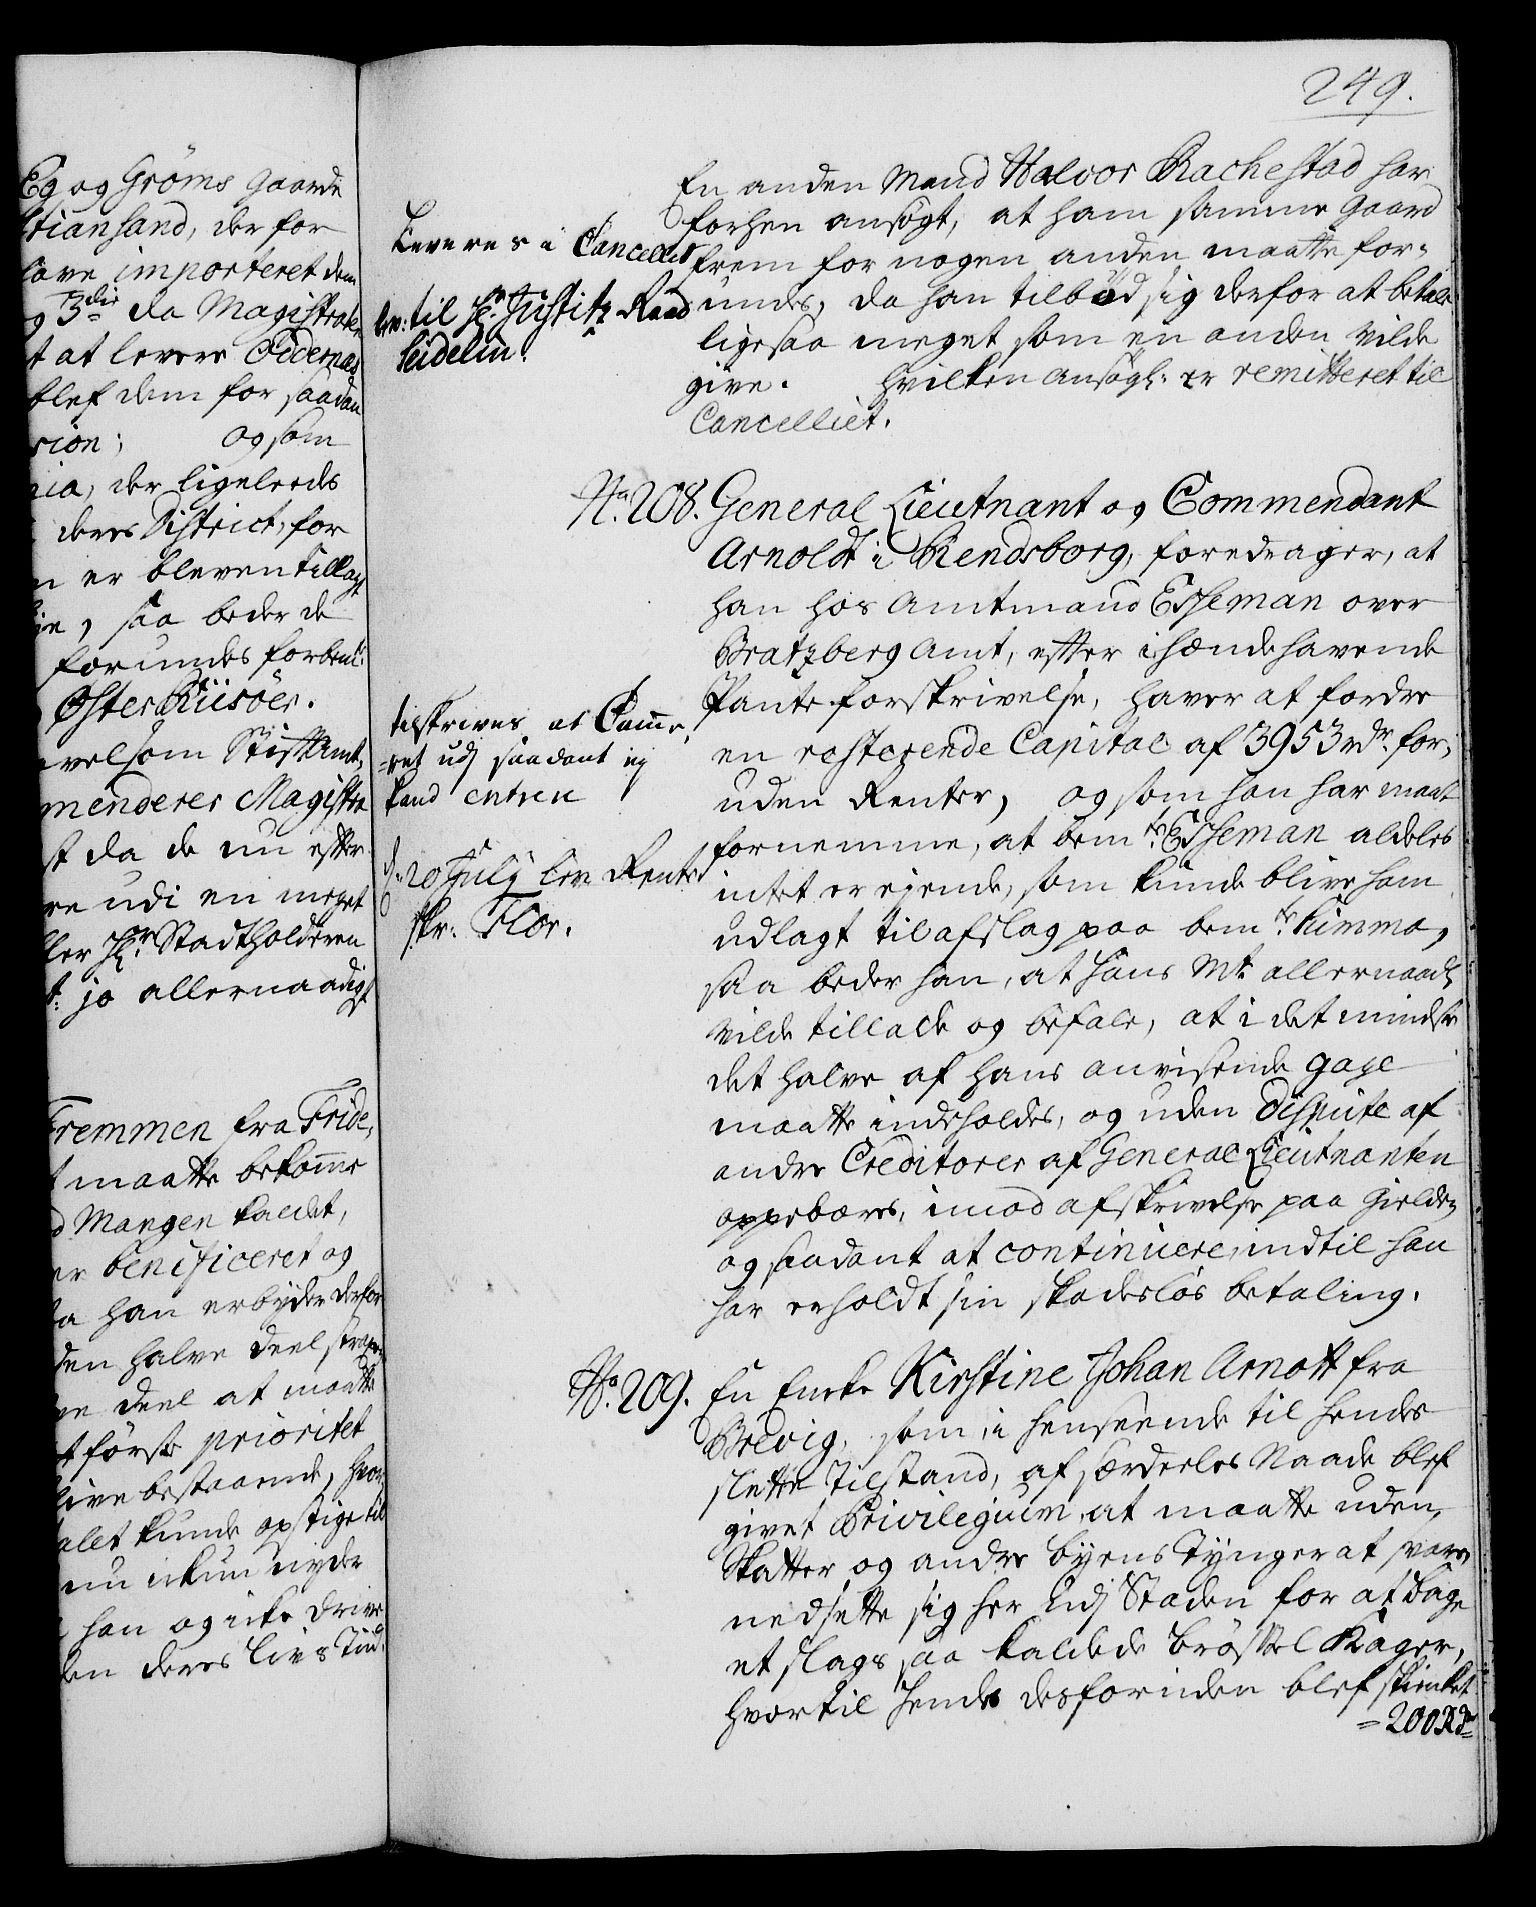 249.
Eg og Grøms Gaarde
tiansand, der for
lave importeret dem
3die da Magistraten
t at levere Eedernes
blef dem for saadan
sion; og som
nia, der ligeleedes
deres District, for
n er bleven tillagt
in, saa beder de
forundes forbem:
Øster Riisøer.
velsom StiftAmt,
menderer Magistra
st da de nu efter
re udi en meget
ller Hr. Stadtholderen
t: jo allernaadigst
Fremmen fra Fride,
t maatte bekomme
d Mangen kaldet,
er beneficeret og
a han erbyder derfor
den halve deel strax
en deel at maatte
t første prioritet
live bestaaende, hvor
alet kunde opstige til
nu ikun nyder
han og icke drive
den deres Livs Tiid.
Leveres i Cancelliet
lev: til Hr. Justitz-Raad
Seidelin.
En anden Mand Halvor Rachestad har
forhen ansøgt, at ham samme Gaard
frem for nogen anden maatte for-
undes, da han tilbød sig derfor at betale
ligesaa meget som en anden vilde
give. Hvilken ansøgl: er remitteret til
Cancelliet.
No. 208. General Lieutnant og Commendant
Arnoldt i Rendsborg, foredrager, at
han hos Amtmand Esseman over
Bratzberg Amt, efter ihændehavende
Pante-forskrivelse, haver at fordre
en resterende Capital af 3953 rdr. for,
uden Renter, og som han har maat
fornemme, at bemte. Esseman aldeles
intet er eyende, som kunde blive ham
udlagt til afslag paa bemte. Summa,
saa beder han, at Hans Mt. allernaad:
vilde tillade og befale, at i det mindste
det halve af hans anvisende gage
maatte indeholdes, og uden Dispute af
andre Creditorer af General Lieutnanten
oppebæres, imod afskrivelse paa Gielden
og saadant at continuere, indtil han
har erholdt sin skadesløs betaling.
tilskrives at Camme,
-ret udj saadant ey
kand entrere
d. 20 July lev Rente
skr: Flor.
No. 209. En Encke Kirstine Johan Arnott fra
Brevig, som i henseende til hendes
slette Tilstand, af særdeeles Naade blef
givet Privilegium, at maatte uden
Skatter og andre byens Tynger at svare
nedsette sig her udj Staden for at bage
et slags saa kaldede brøssel Kager,
hvortil hende desforuden blef skienket
= 200 Rd=